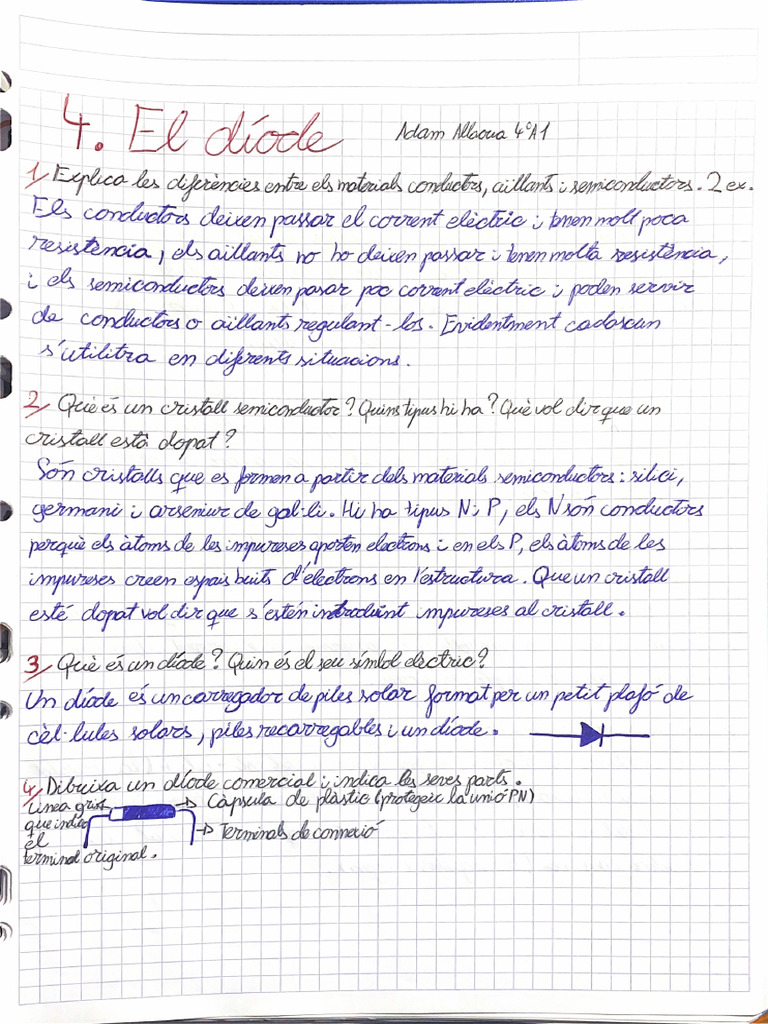 4. El díode
Adam Allaoua 4ºA1
1/ Explica les diferències entre els materials conductors, aïllants i semiconductors. 2 ex.
Els conductors deixen passar el corrent elèctric i tenen molt poca
resistència, els aillants no ho deixen passar i tenen molta resistència,
i els semiconductors deixen pasar poc corrent elèctric i poden servir
de conductors o aillants regulant-los. Evidentment cadascun
s'utilitza en diferents situacions.
2/ Què és un cristall semiconductor? Quins tipus hi ha? Què vol dir que un
cristall està dopat?
Són cristalls que es formen a partir dels materials semiconductors: silici,
germani i arseniur de gal·li. Hi ha tipus N i P, els N són conductors
perquè els àtoms de les impureses aporten electrons i en els P, els àtoms de les
impureses creen espais buits d'electrons en l'estructura. Que un cristall
esté dopat vol dir que s'estén introduint impureses al cristall.
3/ Què és un díode? Quin és el seu símbol electric?
Un díode és un carregador de piles solar format per un petit plafó de
cèl·lules solars, piles recarregables i un díode.
4/ Dibuixa un díode comercial i indica les seves parts.
Línea gris
que indica
el
terminal original.
Càpsula de plàstic (protegeix la unió PN)
Terminals de connexió